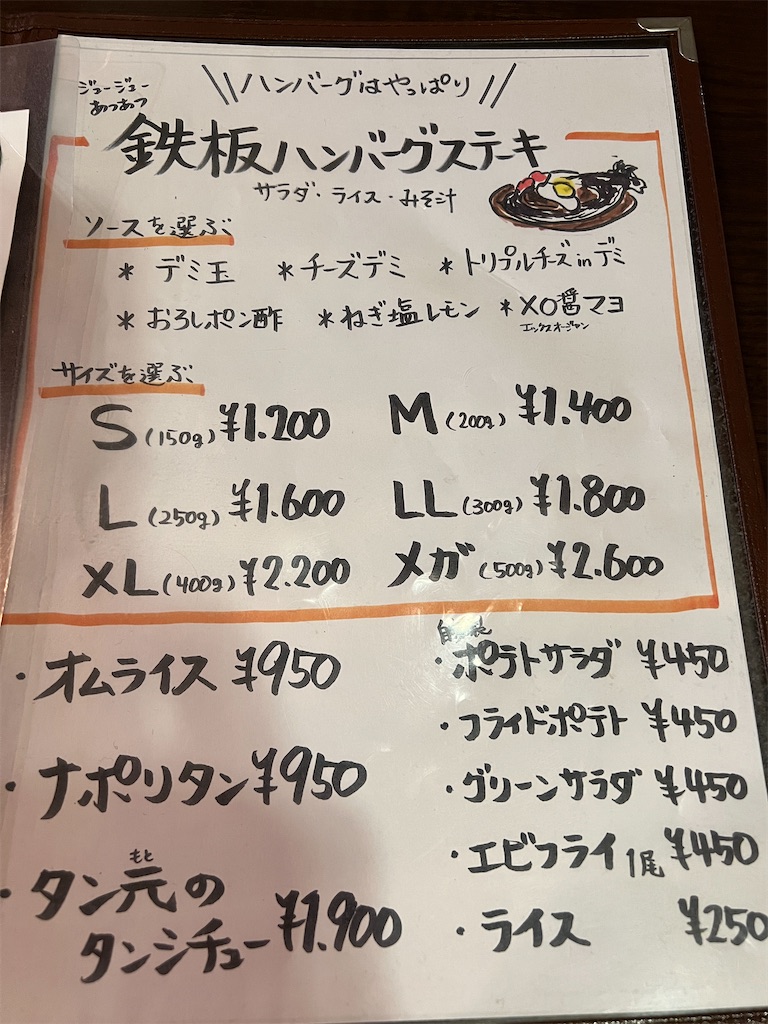 ジュージュー
あつあつ
\\ハンバーグはやっぱり//
鉄板ハンバーグステーキ
サラダ・ライス・みそ汁
ソースを選ぶ
* デミ玉 * チーズデミ * トリプルチーズinデミ
* おろしポン酢 * ねぎ塩レモン * XO醤マヨ
エックスオージャン
サイズを選ぶ
S(150g) ¥1.200 M(200g) ¥1.400
L(250g) ¥1.600 LL(300g) ¥1.800
XL(400g) ¥2.200 メガ(500g) ¥2.600
・オムライス ¥950
・ナポリタン ¥950
もと
・タン元の
タンシチュー ¥1.900
自家製
・ポテトサラダ ¥450
・フライドポテト ¥450
・グリーンサラダ ¥450
・エビフライ 1尾 ¥450
・ライス ¥250